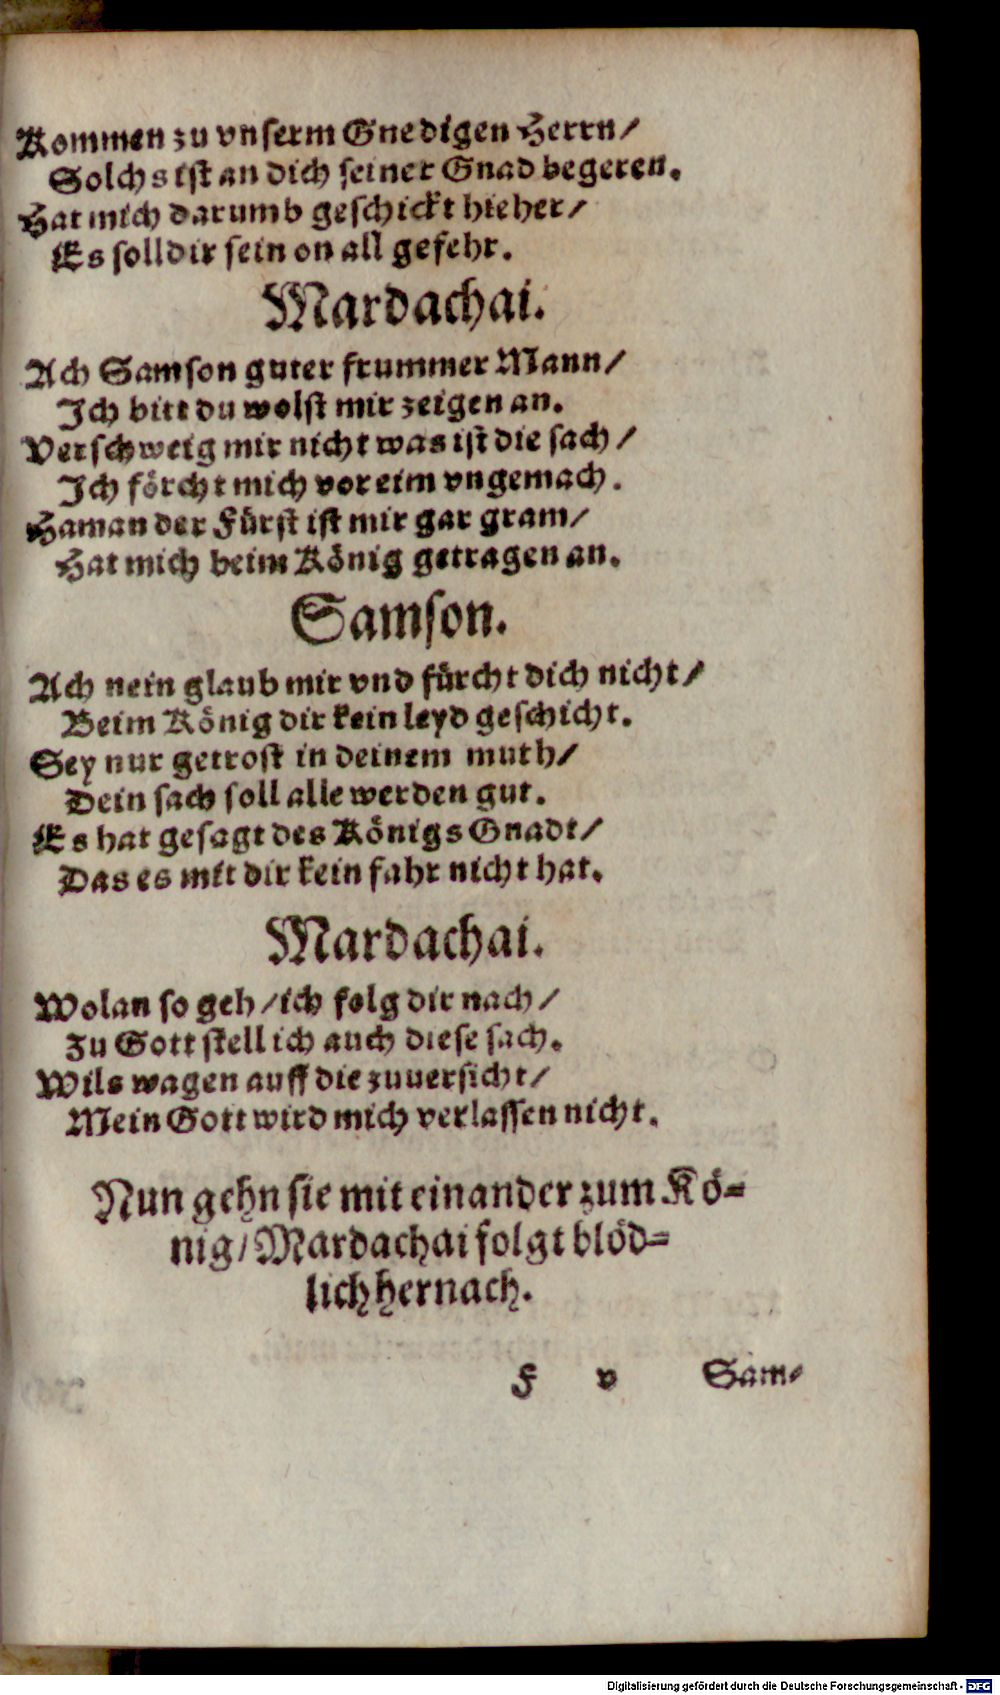 Kommen zu vnserm Gnedigen Herrn/
Solchs ist an dich seiner Gnad begeren.
Hat mich darumb geschickt hieher/
Es soll dir sein on all gefehr.
Mardachai.
Ach Samson guter frummer Mann/
Ich bitt du wolst mir zeigen an.
Verschweig mir nicht was ist die sach/
Ich förcht mich vor eim vngemach.
Haman der Fürst ist mir gar gram/
Hat mich beim König getragen an.
Samson.
Ach nein glaub mir vnd fürcht dich nicht/
Beim König dir kein leyd geschicht.
Sey nur getrost in deinem muth/
Dein sach soll alle werden gut.
Es hat gesagt des Königs Gnadt/
Das es mit dir kein fahr nicht hat.
Mardachai.
Wolan so geh/ich folg dir nach/
Zu Gott stell ich auch diese sach.
Wils wagen auff die zuuersicht/
Mein Gott wird mich verlassen nicht.
Nun gehn sie mit einander zum Kö-
nig/Mardachai folgt blöd-
lich hernach.
F v Sam-
Digitalisierung gefördert durch die Deutsche Forschungsgemeinschaft - DFG